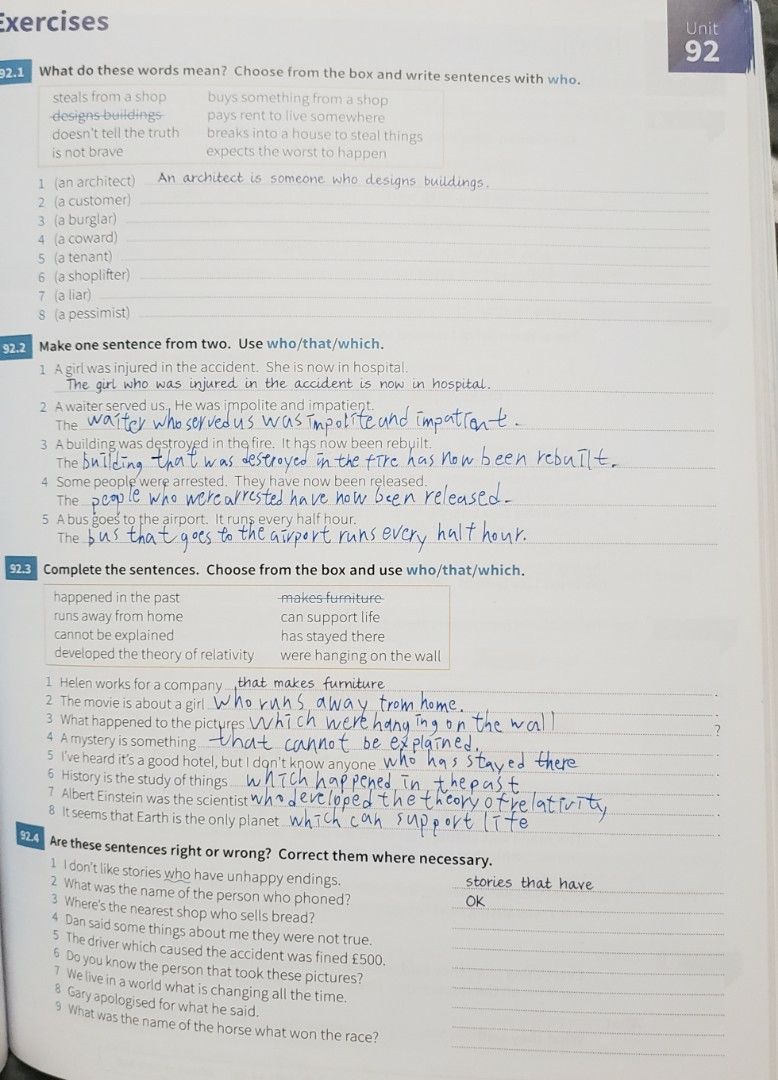 Exercises
Unit
92
92.1 What do these words mean? Choose from the box and write sentences with who.
steals from a shop buys something from a shop
designs buildings pays rent to live somewhere
doesn't tell the truth breaks into a house to steal things
is not brave expects the worst to happen
1 (an architect) An architect is someone who designs buildings.
2 (a customer)
3 (a burglar)
4 (a coward)
5 (a tenant)
6 (a shoplifter)
7 (a liar)
8 (a pessimist)
92.2 Make one sentence from two. Use who/that/which.
1 A girl was injured in the accident. She is now in hospital.
The girl who was injured in the accident is now in hospital.
2 A waiter served us. He was impolite and impatient.
The waiter who served us was impolite and impatient.
3 A building was destroyed in the fire. It has now been rebuilt.
The building that was destroyed in the fire has now been rebuilt.
4 Some people were arrested. They have now been released.
The people who were arrested have now been released.
5 A bus goes to the airport. It runs every half hour.
The bus that goes to the airport runs every half hour.
92.3 Complete the sentences. Choose from the box and use who/that/which.
happened in the past makes furniture
runs away from home can support life
cannot be explained has stayed there
developed the theory of relativity were hanging on the wall
1 Helen works for a company that makes furniture .
2 The movie is about a girl who runs away from home.
3 What happened to the pictures which were hanging on the wall ?
4 A mystery is something that cannot be explained.
5 I've heard it's a good hotel, but I don't know anyone who has stayed there .
6 History is the study of things which happened in the past .
7 Albert Einstein was the scientist who developed the theory of relativity .
8 It seems that Earth is the only planet which can support life .
92.4 Are these sentences right or wrong? Correct them where necessary.
1 I don't like stories who have unhappy endings. stories that have
2 What was the name of the person who phoned? OK
3 Where's the nearest shop who sells bread?
4 Dan said some things about me they were not true.
5 The driver which caused the accident was fined £500.
6 Do you know the person that took these pictures?
7 We live in a world what is changing all the time.
8 Gary apologised for what he said.
9 What was the name of the horse what won the race?